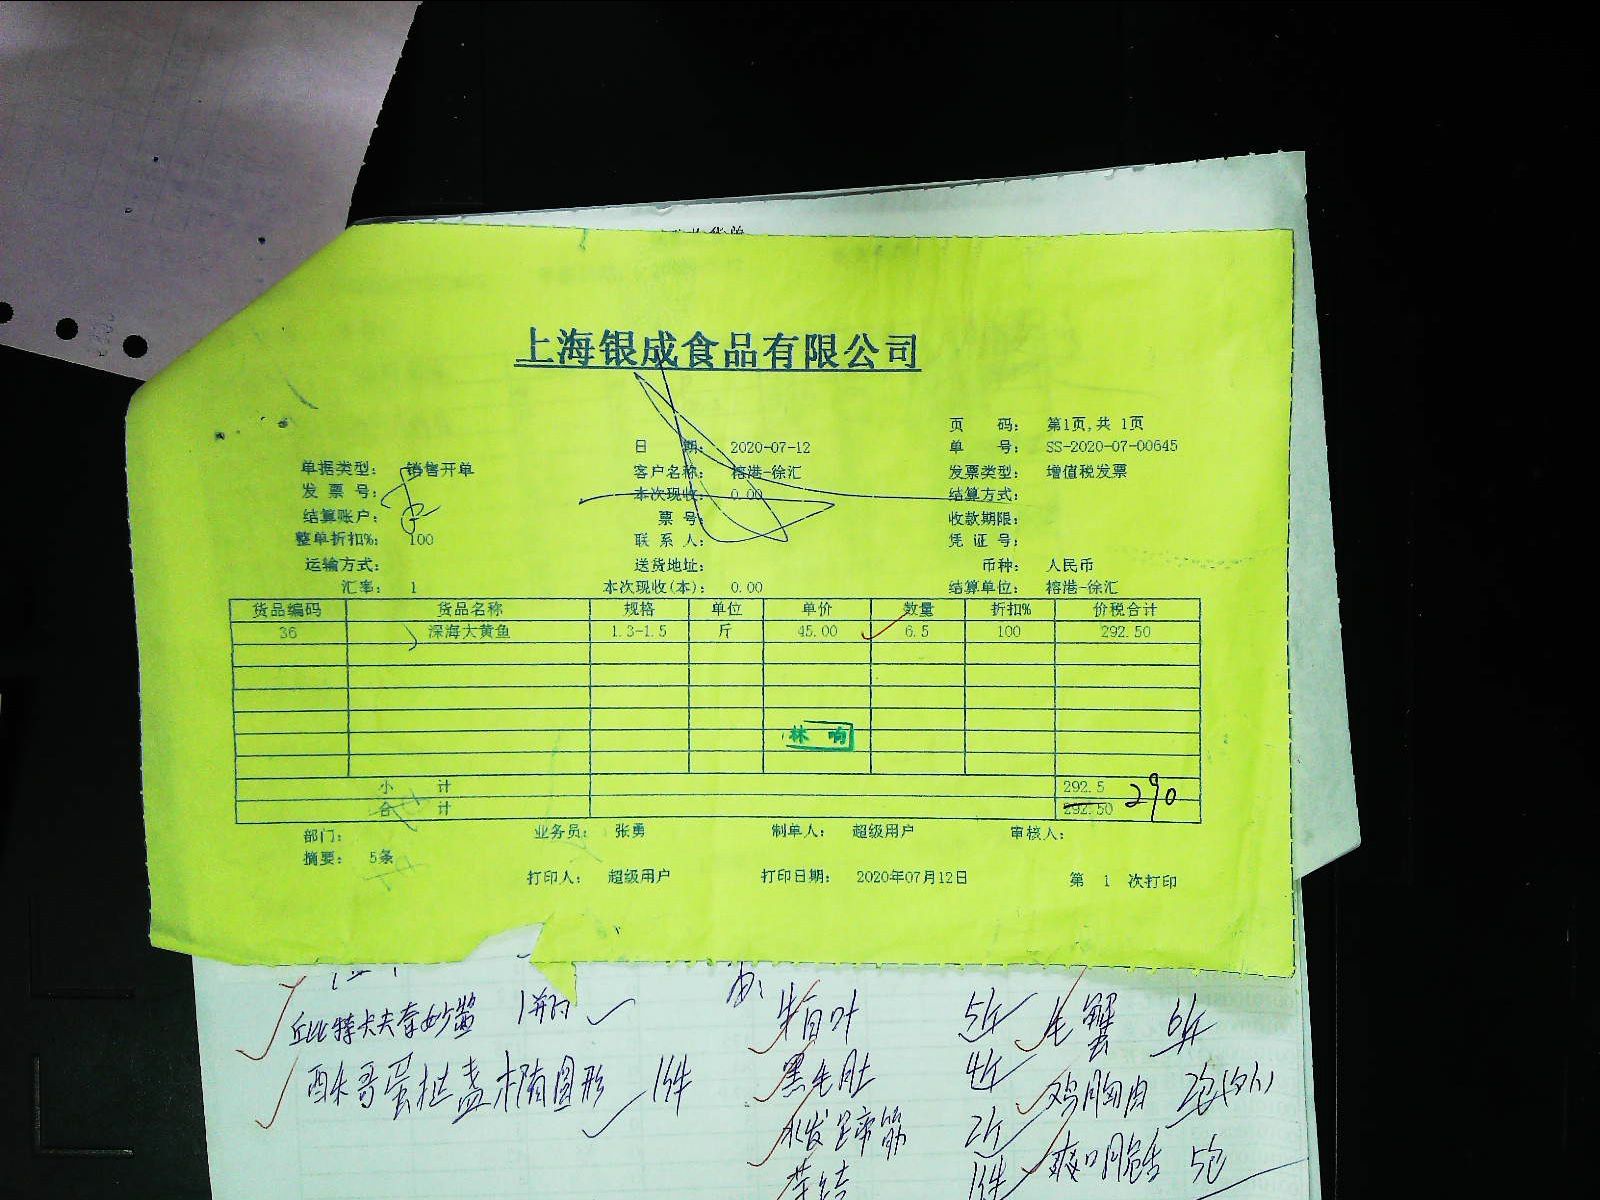 上海银成食品有限公司
页 码: 第1页,共 1页
日 期: 2020-07-12 单 号: SS-2020-07-00645
单据类型: 销售开单 客户名称: 榕港-徐汇 发票类型: 增值税发票
发 票 号: 本次现收: 0.00 结算方式:
结算账户: 票 号: 收款期限:
整单折扣%: 100 联 系 人: 凭 证 号:
运输方式: 送货地址: 币种: 人民币
汇率: 1 本次现收(本): 0.00 结算单位: 榕港-徐汇
货品编码 货品名称 规格 单位 单价 数量 折扣% 价税合计
36 深海大黄鱼 1.3-1.5 斤 45.00 6.5 100 292.50
林 响
小 计 292.5
合 计 292.50 290
部门: 业务员: 张勇 制单人: 超级用户 审核人:
摘要: 5条
打印人: 超级用户 打印日期: 2020年07月12日 第 1 次打印
丘比特卡夫奇妙酱 1 5斤 毛蟹 6斤
酥哥蛋挞盏椭圆形 1件 黑毛肚 4斤 鸡胸肉 2包
水发蹄筋 2斤
1件 5包